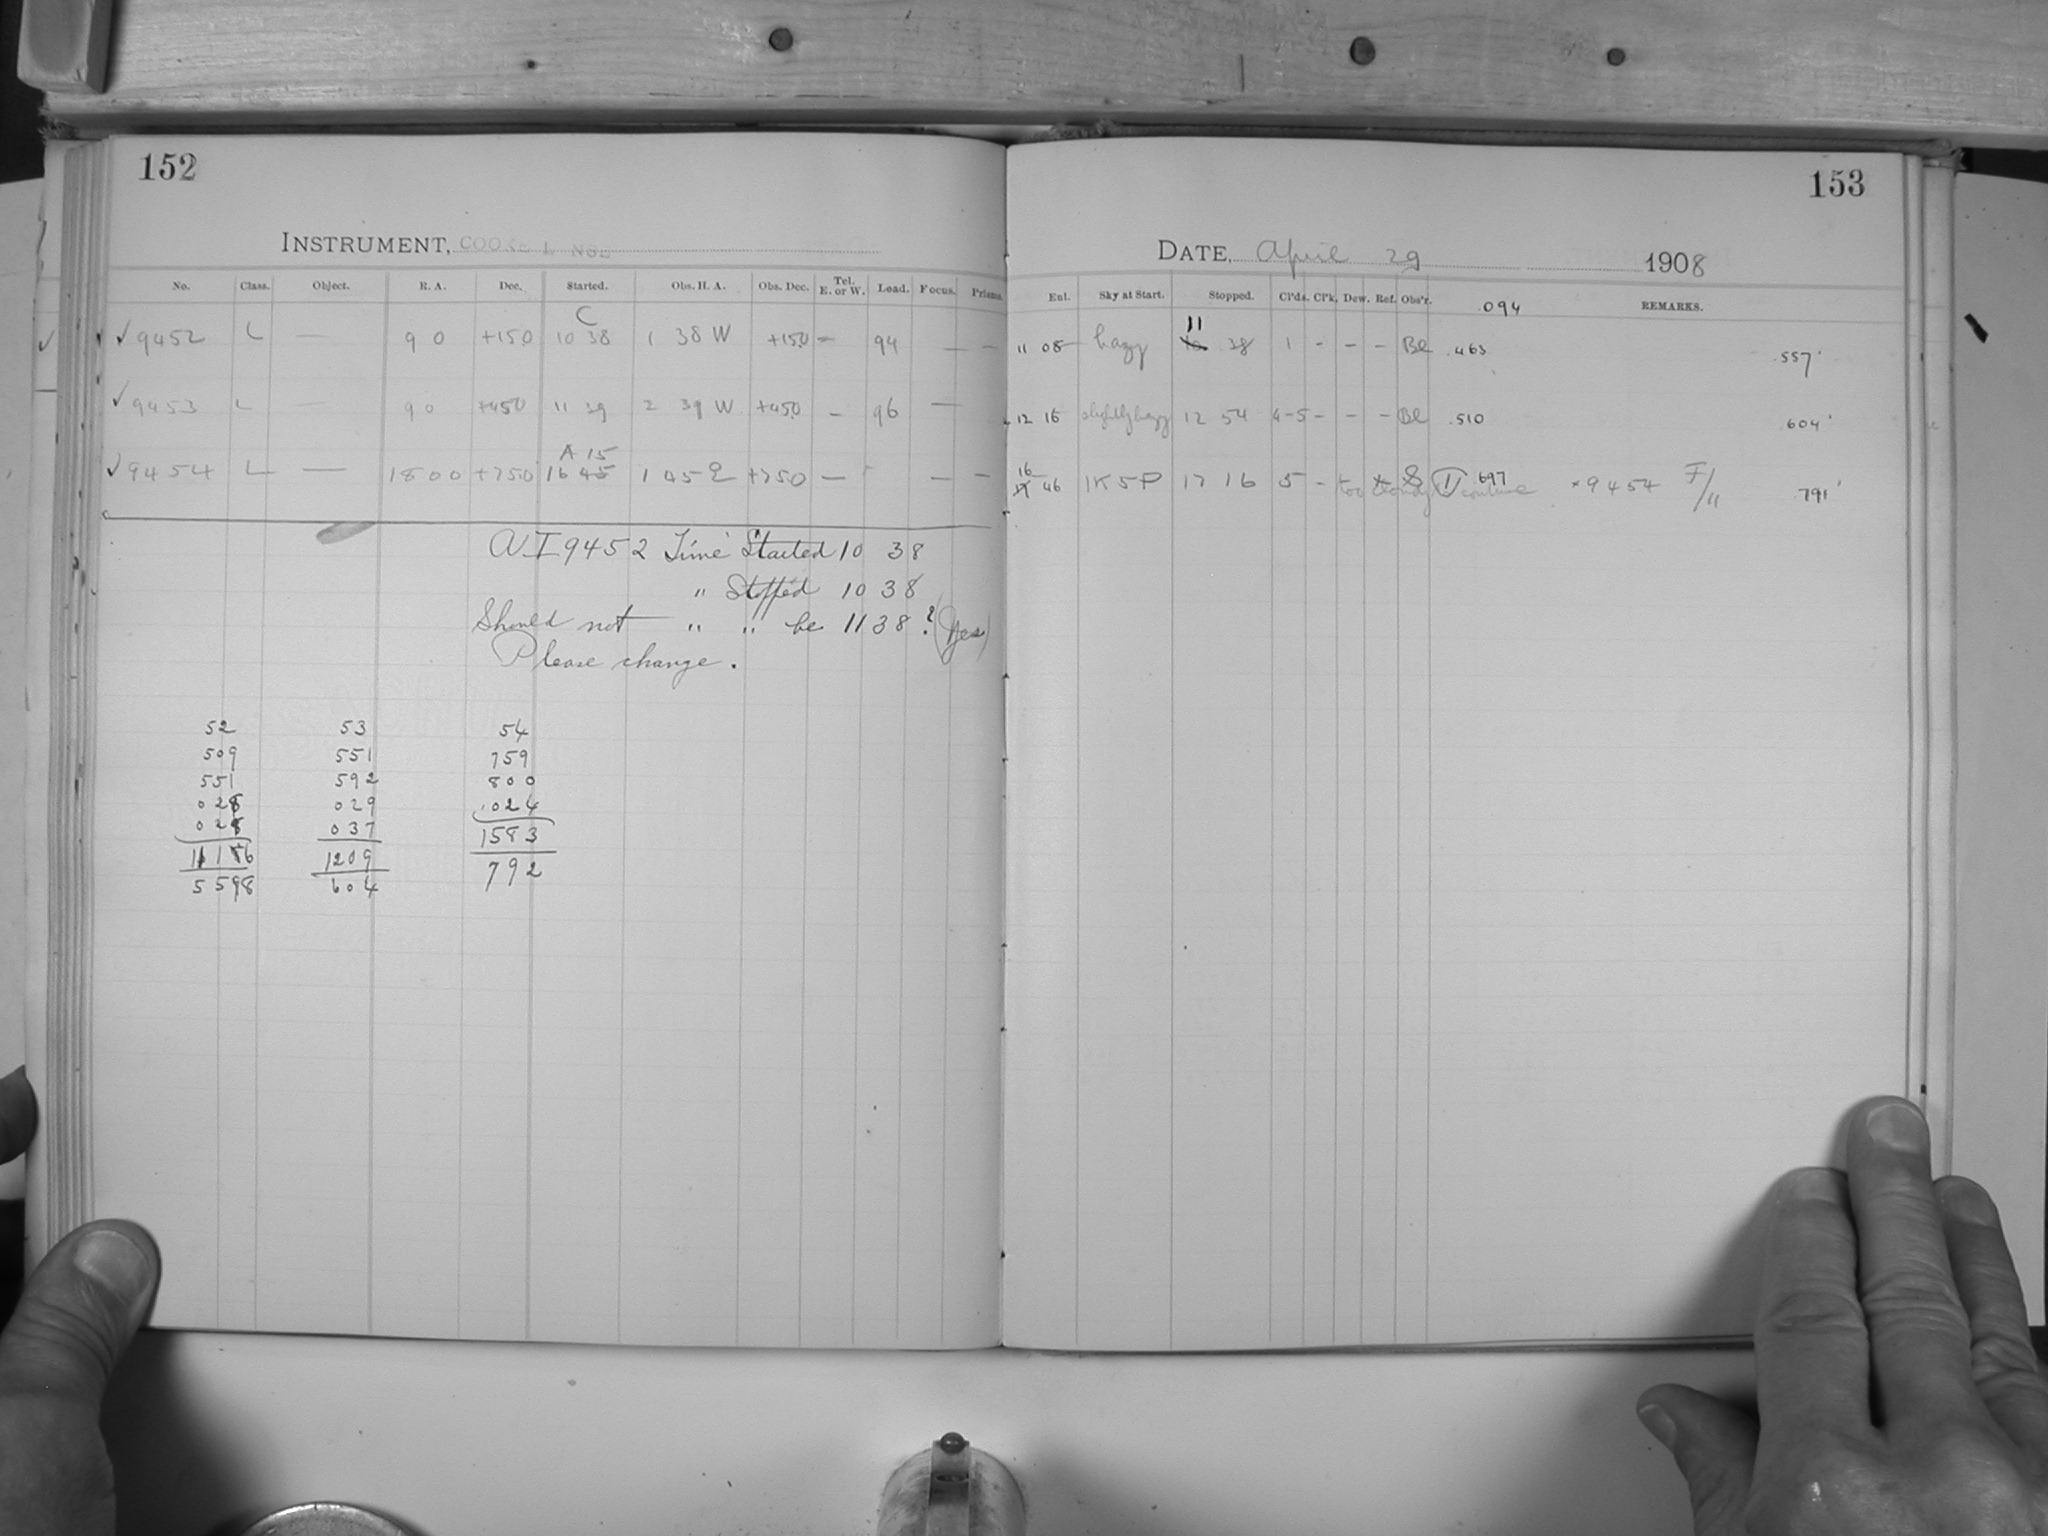 152
INSTRUMENT, COOKE LENS
No. Class. Object. R. A. Dec. Started. Obs. H. A. Obs. Dec. Tel. E. or W. Load. Focus. Prisms.
C
✓9452 L — 9 0 +15.0 10 38 1 38 W +15.0 — 94 — —
✓9453 L — 9 0 +45.0 11 39 2 39 W +45.0 — 96 —
A 15
✓9454 L — 18 00 +75.0 16 45 1 45 E +75.0 — — —
A.I 9452 Time Started 10 38
" Stopped 10 38
Should not " " be 11 38 ? (Yes)
Please change.
52 53 54
509 551 759
551 592 800
028 029 024
028 037 1583
1116 1209 792
5598 604
153
DATE, April 29 1908
Enl. Sky at Start. Stopped. Cl'ds. Cl'k. Dew. Ref. Obs'r. .094 REMARKS.
11
11 08 hazy 10 38 1 - - - Be .463 .557
12 16 slightly hazy 12 54 4-5 - - - Be .510 .604
16
17 46 1K5P 17 16 5 - too cloudy to continue .697 *9454 F/11 .791